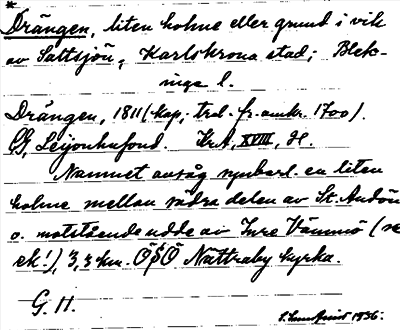 *
Drängen, liten holme eller grund i vik
av Saltsjön, Karlskrona stad; Blek-
inge l.
Drängen, 1811 (kop. trol. fr. omkr. 1700).
GG, Leijonhufvud. KrA, XVIII, H.
Namnet avsåg synbarl. en liten
holme mellan södra delen av St. Andön
o. motstående udde av Inre Vämmö (se
ek!), 3,3 km. ÖSÖ Nättraby kyrka.
G. H.
1936.